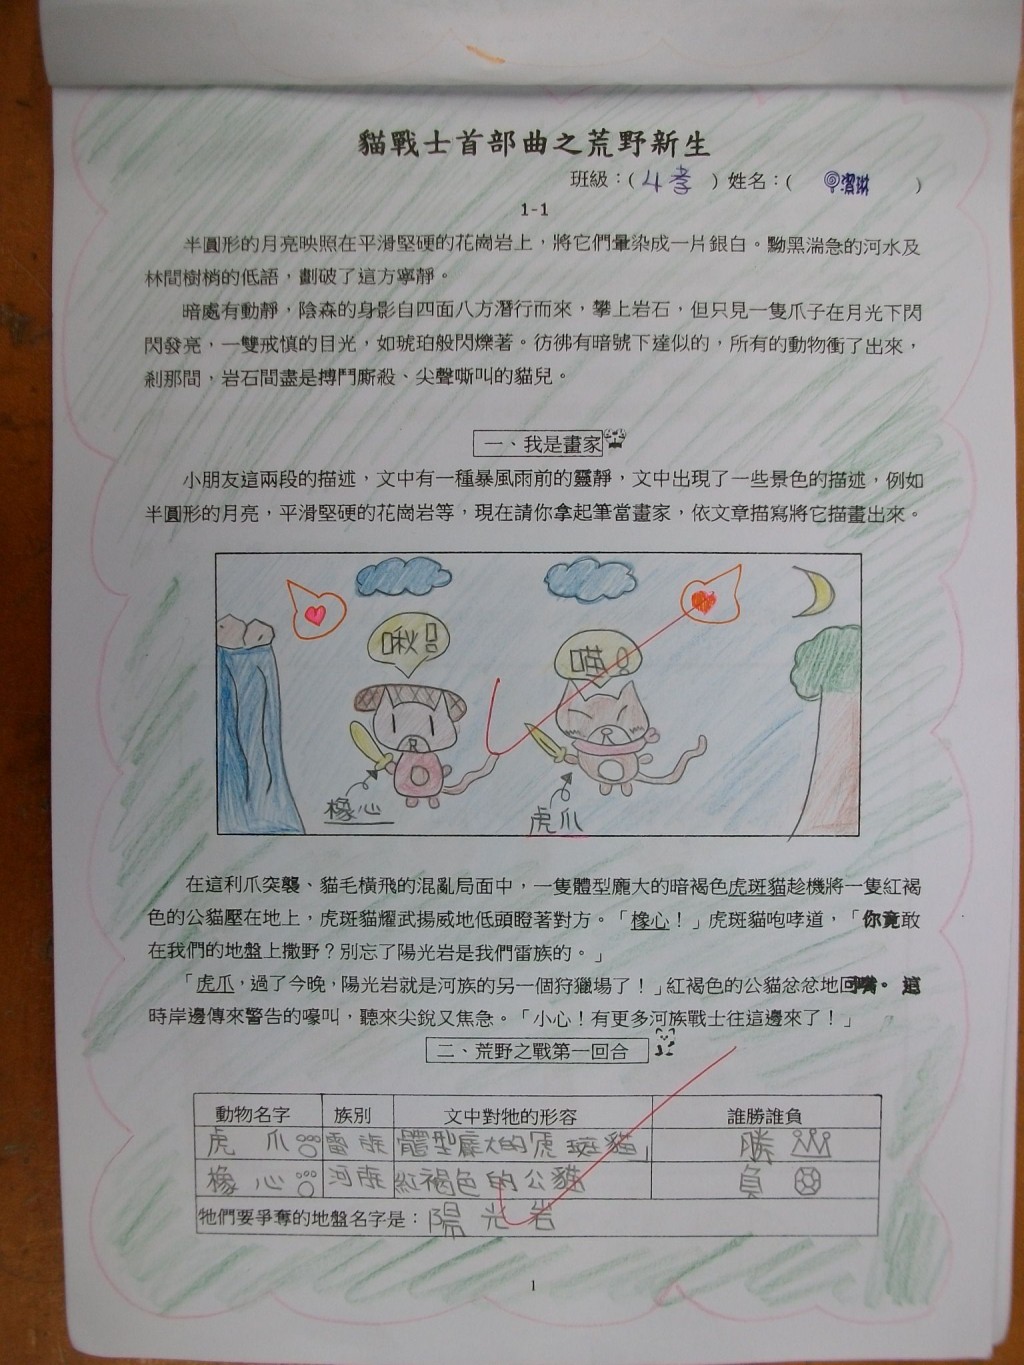 貓戰士首部曲之荒野新生
班級：( 4孝 ) 姓名：( 潔琳 )
1-1
半圓形的月亮映照在平滑堅硬的花崗岩上，將它們暈染成一片銀白。黝黑湍急的河水及
林間樹梢的低語，劃破了這方寧靜。
暗處有動靜，陰森的身影自四面八方潛行而來，攀上岩石，但只見一隻爪子在月光下閃
閃發亮，一雙戒慎的目光，如琥珀般閃爍著。彷彿有暗號下達似的，所有的動物衝了出來，
剎那間，岩石間盡是搏鬥廝殺、尖聲嘶叫的貓兒。
一、我是畫家
小朋友這兩段的描述，文中有一種暴風雨前的靈靜，文中出現了一些景色的描述，例如
半圓形的月亮，平滑堅硬的花崗岩等，現在請你拿起筆當畫家，依文章描寫將它描畫出來。
啾!!
喵!
橡心
虎爪
在這利爪突襲、貓毛橫飛的混亂局面中，一隻體型龐大的暗褐色虎斑貓趁機將一隻紅褐
色的公貓壓在地上，虎斑貓耀武揚威地低頭瞪著對方。「橡心！」虎斑貓咆哮道，「你竟敢
在我們的地盤上撒野？別忘了陽光岩是我們雷族的。」
「虎爪，過了今晚，陽光岩就是河族的另一個狩獵場了！」紅褐色的公貓忿忿地回嘴。這
時岸邊傳來警告的嚎叫，聽來尖銳又焦急。「小心！有更多河族戰士往這邊來了！」
二、荒野之戰第一回合
動物名字 族別 文中對牠的形容 誰勝誰負
虎爪 雷族 體型龐大的虎斑貓」 勝
橡心 河族 紅褐色的公貓 負
牠們要爭奪的地盤名字是：陽光岩
1